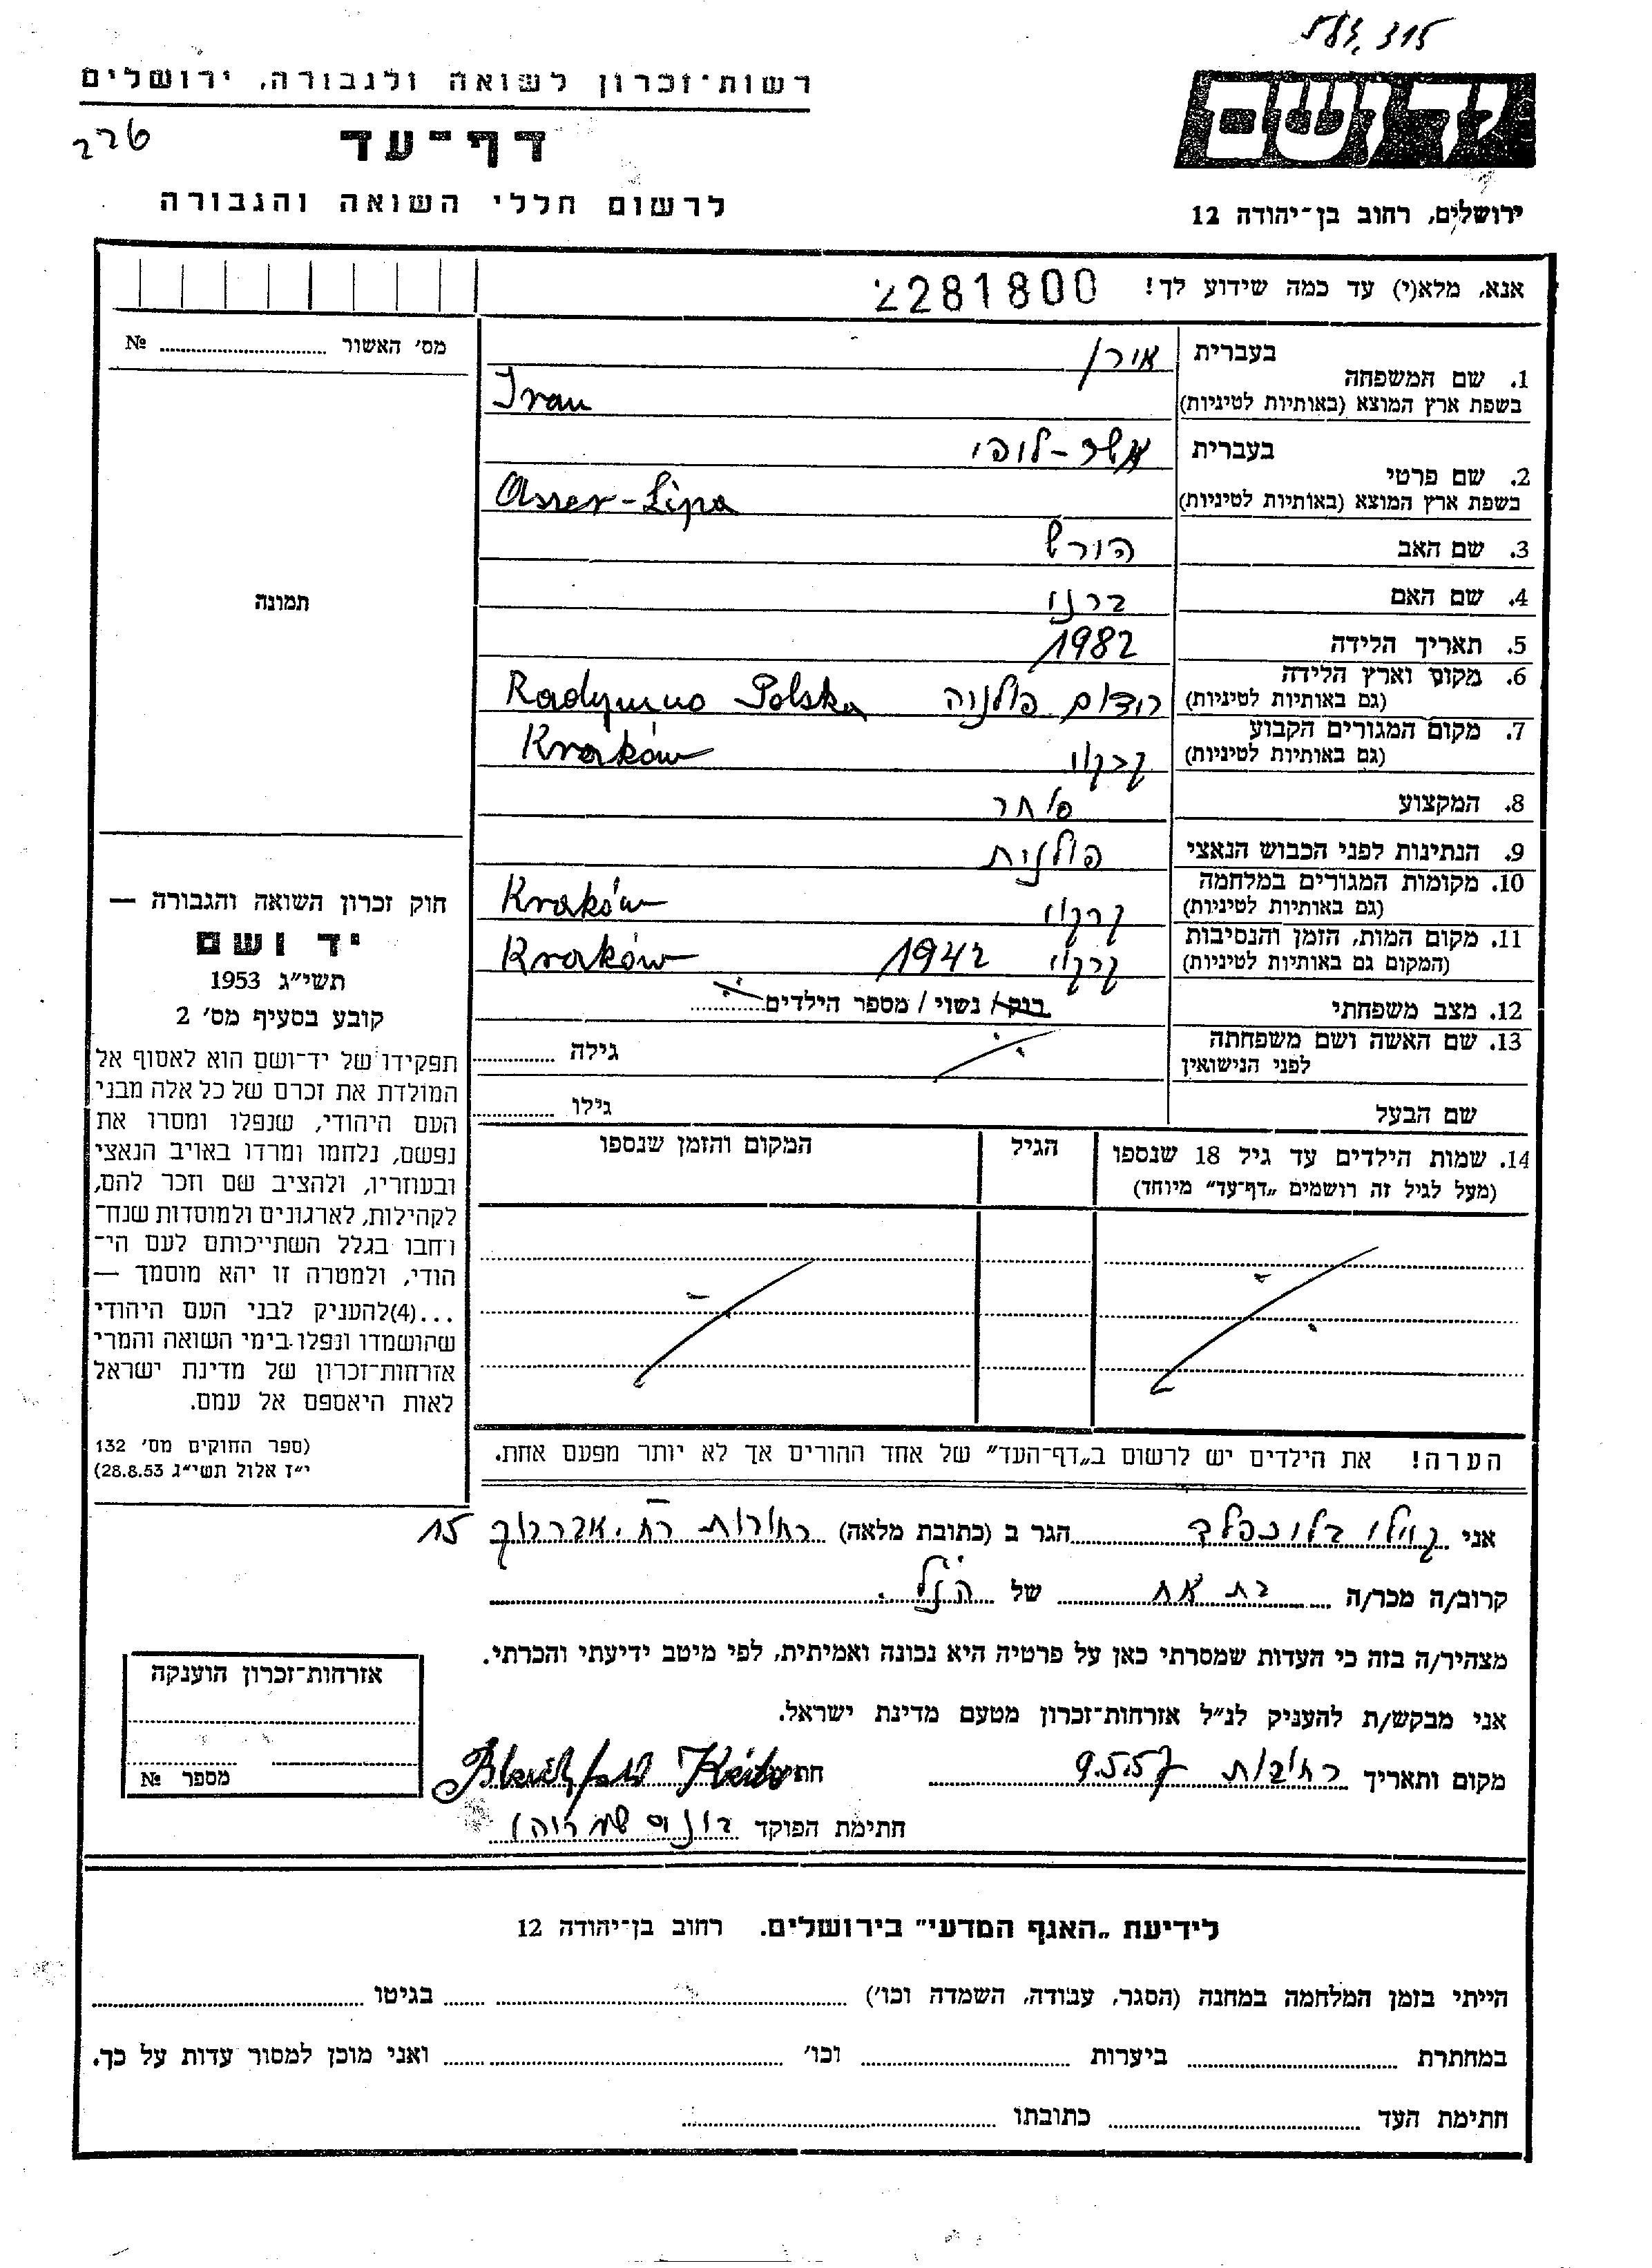 רשות־זכרון לשואה ולגבורה, ירושלים
226
דף־עד
לרשום חללי השואה והגבורה
יד ושם
ירושלים, רחוב בן־יהודה 12
אנא, מלא(י) עד כמה שידוע לך!
2281800
מס׳ האשור ........ №
תמונה
חוק זכרון השואה והגבורה —
יד ושם
תשי״ג 1953
קובע בסעיף מס׳ 2
תפקידו של יד־ושם הוא לאסוף אל
המולדת את זכרם של כל אלה מבני
העם היהודי, שנפלו ומסרו את
נפשם, נלחמו ומרדו באויב הנאצי
ובעוזריו, ולהציב שם וזכר להם,
לקהילות, לארגונים ולמוסדות שנח־
רבו בגלל השתייכותם לעם הי־
הודי, ולמטרה זו יהא מוסמך —
...(4)להעניק לבני העם היהודי
שהושמדו ונפלו בימי השואה והמרי
אזרחות־זכרון של מדינת ישראל
לאות היאספם אל עמם.
(ספר החוקים מס׳ 132
י״ז אלול תשי״ג 28.8.53)
1. שם המשפחה
בעברית
בשפת ארץ המוצא (באותיות לטיניות)
2. שם פרטי
בעברית
בשפת ארץ המוצא (באותיות לטיניות) Asser-Lipa
3. שם האב הירש
4. שם האם
5. תאריך הלידה 1982
6. מקום וארץ הלידה פולניה Radymno Polska
(גם באותיות לטיניות)
7. מקום המגורים הקבוע קרקוי Kraków
(גם באותיות לטיניות)
8. המקצוע סוחר
9. הנתינות לפני הכבוש הנאצי פולנית
10. מקומות המגורים במלחמה קרקוי Kraków
(גם באותיות לטיניות)
11. מקום המות, הזמן והנסיבות קרקוי 1942 Kraków
(המקום גם באותיות לטיניות)
12. מצב משפחתי רוק / נשוי / מספר הילדים........
13. שם האשה ושם משפחתה גילה ........
לפני הנישואין
שם הבעל גילו ........
14. שמות הילדים עד גיל 18 שנספו הגיל המקום והזמן שנספו
(מעל לגיל זה רושמים „דף־עד״ מיוחד)
הערה! את הילדים יש לרשום ב„דף־העד״ של אחד ההורים אך לא יותר מפעם אחת.
אני בלוכפלד הגר ב (כתובת מלאה) רחובות רח. 15
קרוב/ה מכר/ה בת אח של הנ״ל.
מצהיר/ה בזה כי העדות שמסרתי כאן על פרטיה היא נכונה ואמיתית, לפי מיטב ידיעתי והכרתי.
אני מבקש/ת להעניק לנ״ל אזרחות־זכרון מטעם מדינת ישראל.
מקום ותאריך רחובות 9.5.57
חתימת הפוקד
אזרחות־זכרון הוענקה
מספר №
לידיעת „האגף המדעי״ בירושלים. רחוב בן־יהודה 12
הייתי בזמן המלחמה במחנה (הסגר, עבודה, השמדה וכו׳) ........ בגיטו ........
במחתרת ........ ביערות ........ וכו׳ ........ ואני מוכן למסור עדות על כך.
חתימת העד ........ כתובתו ........